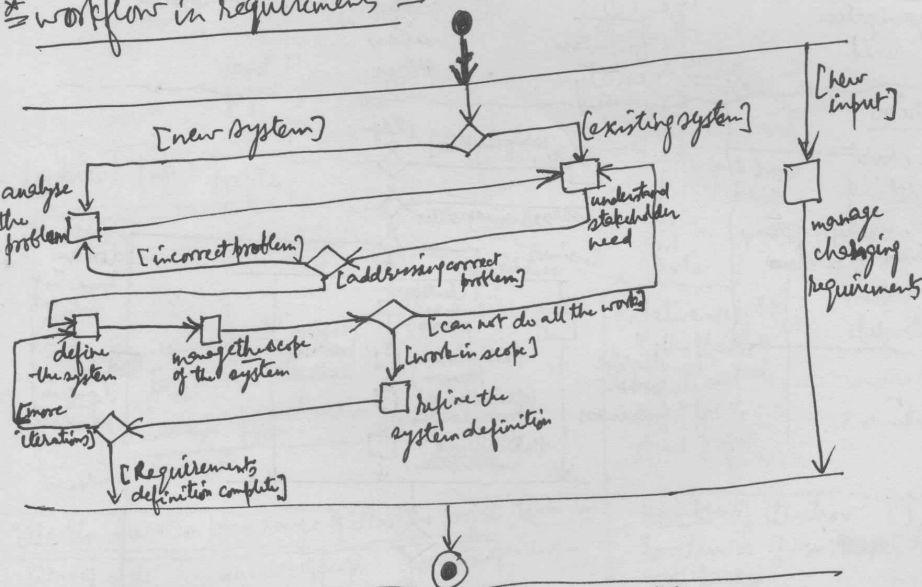 * workflow in requirements
[new system]
[existing system]
[new
input]
analyse
the
problem
understand
stakeholder
need
manage
changing
requirements
[incorrect problem]
[addressing correct
problem]
[can not do all the work]
define
the system
manage the scope
of the system
[work in scope]
Refine the
system definition
[more
iterations]
[Requirements
definition complete]